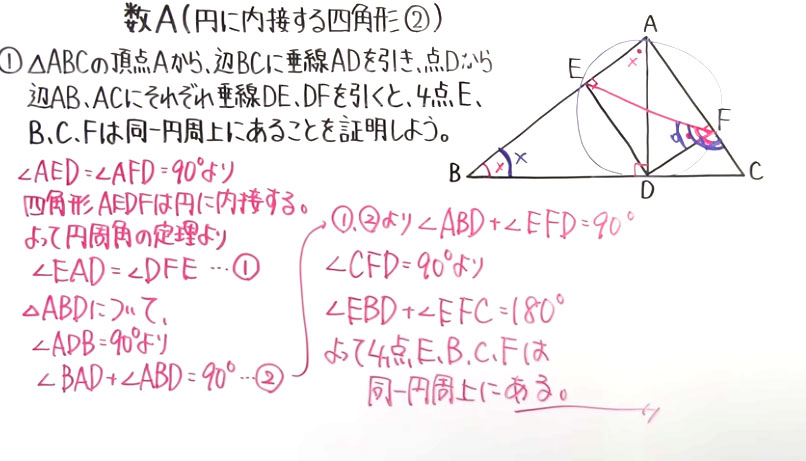 数A(円に内接する四角形②)
① △ABCの頂点Aから、辺BCに垂線ADを引き、点Dから
辺AB、ACにそれぞれ垂線DE、DFを引くと、4点E、
B、C、Fは同一円周上にあることを証明しよう。
∠AED=∠AFD=90°より
四角形AEDFは円に内接する。
よって円周角の定理より
∠EAD=∠DFE …①
△ABDについて、
∠ADB=90°より
∠BAD+∠ABD=90° …②
①、②より∠ABD+∠EFD=90°
∠CFD=90°より
∠EBD+∠EFC=180°
よって4点E、B、C、Fは
同一円周上にある。
A
E
x
F
B
x
x
D
C